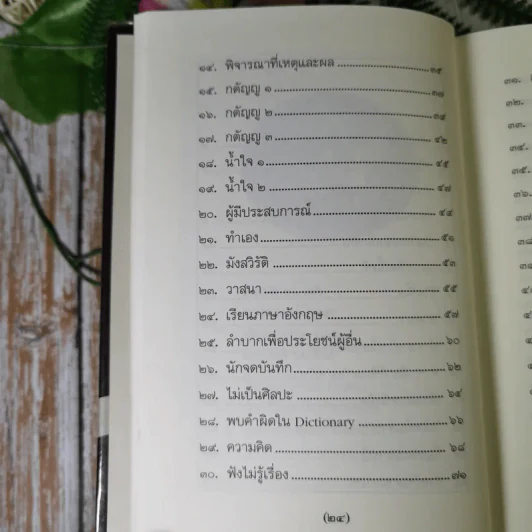 ๑๔. พิจารณาที่เหตุและผล ๓๕
๑๕. กตัญญู ๑ ๓๗
๑๖. กตัญญู ๒ ๓๙
๑๗. กตัญญู ๓ ๔๒
๑๘. น้ำใจ ๑ ๔๕
๑๙. น้ำใจ ๒ ๔๗
๒๐. ผู้มีประสบการณ์ ๔๙
๒๑. ทำเอง ๕๑
๒๒. มังสวิรัติ ๕๓
๒๓. วาสนา ๕๕
๒๔. เรียนภาษาอังกฤษ ๕๗
๒๕. ลำบากเพื่อประโยชน์ผู้อื่น ๖๐
๒๖. นักจดบันทึก ๖๒
๒๗. ไม่เป็นศิลปะ ๖๔
๒๘. พบคำผิดใน Dictionary ๖๖
๒๙. ความคิด ๖๘
๓๐. ฟังไม่รู้เรื่อง ๗๑
(๒๔)
๓๑.
๓๒.
๓๓.
๓๔.
๓๕.
๓๖.
๓๗
๓๘